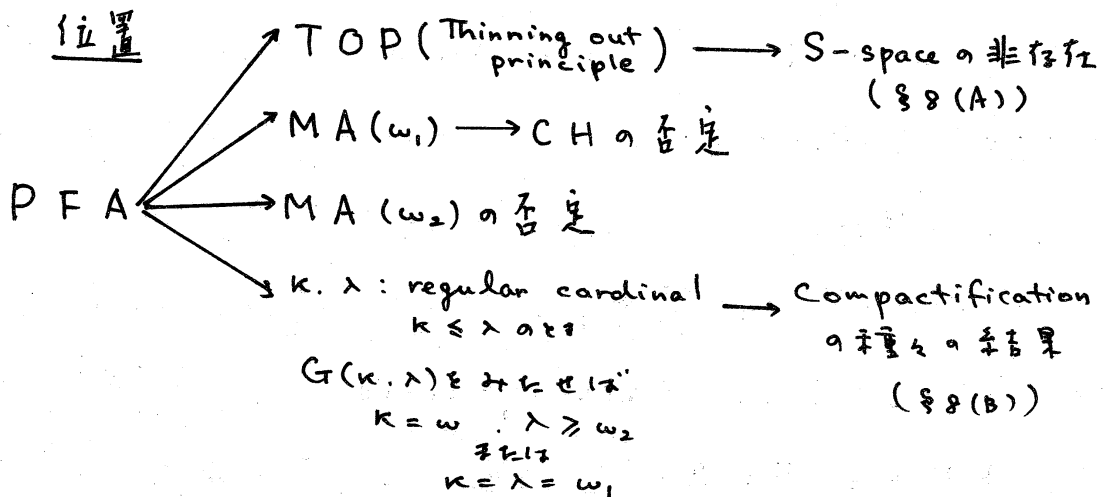 位置
TOP (Thinning out principle) → S-space の非存在
(§8(A))
MA(ω₁) → CH の否定
PFA
MA(ω₂) の否定
κ.λ : regular cardinal → Compactification
κ ≤ λ のとき
の種々の結果
G(κ.λ)をみたせば
(§8(B))
κ = ω . λ ≥ ω₂
または
κ = λ = ω₁